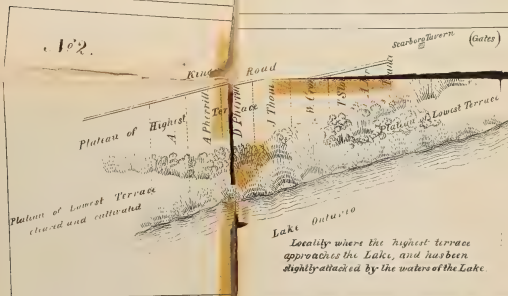 No 2.
Scarboro Tavern (Gates)
King Road
Plateau of Highest Terrace
A. Pherrill
J Thom
Plateau of Lowest Terrace
Plateau of Lowest Terrace
cleared and cultivated
Lake Ontario
Locality where the highest terrace
approaches the Lake, and has been
slightly attacked by the waters of the Lake